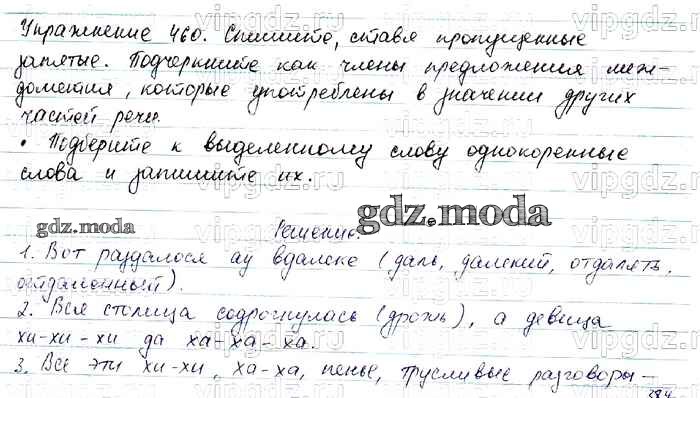 Упражнение 460. Спишите, ставя пропущенные
запятые. Подчеркните как члены предложения меж-
дометия, которые употреблены в значении других
частей речи.
• Подберите к выделенному слову однокоренные
слова и запишите их.
gdz.moda
gdz.moda
Решение.
1. Вот раздалося ау вдалеке (даль, далекий, отдалять,
отдаленный).
2. Вся столица содрогнулась (дрожь), а девица
хи-хи-хи да ха-ха-ха.
3. Все эти хи-хи, ха-ха, пенье, трусливые разговоры –